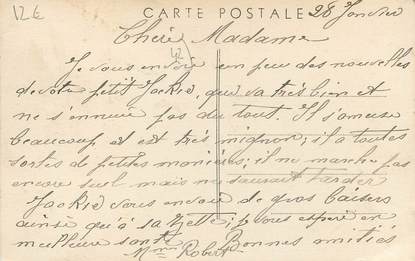 12€
CARTE POSTALE
28 Janvier
Chère Madame
Je vous envoie un peu des nouvelles
de votre petit Jackie, qui va très bien et
ne s'ennuie pas du tout. Il s'amuse
beaucoup et est très mignon; il a toutes
sortes de petites manières; il ne marche pas
encore seul mais ne saurait tarder
Jackie vous envoie de gros baisers
ainsi qu'à sa je vous espère en
meilleure santé Bonnes amitiés
Mme Robert